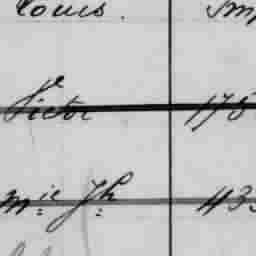 Louis. Imp
Victor 175
Mie Jh 433